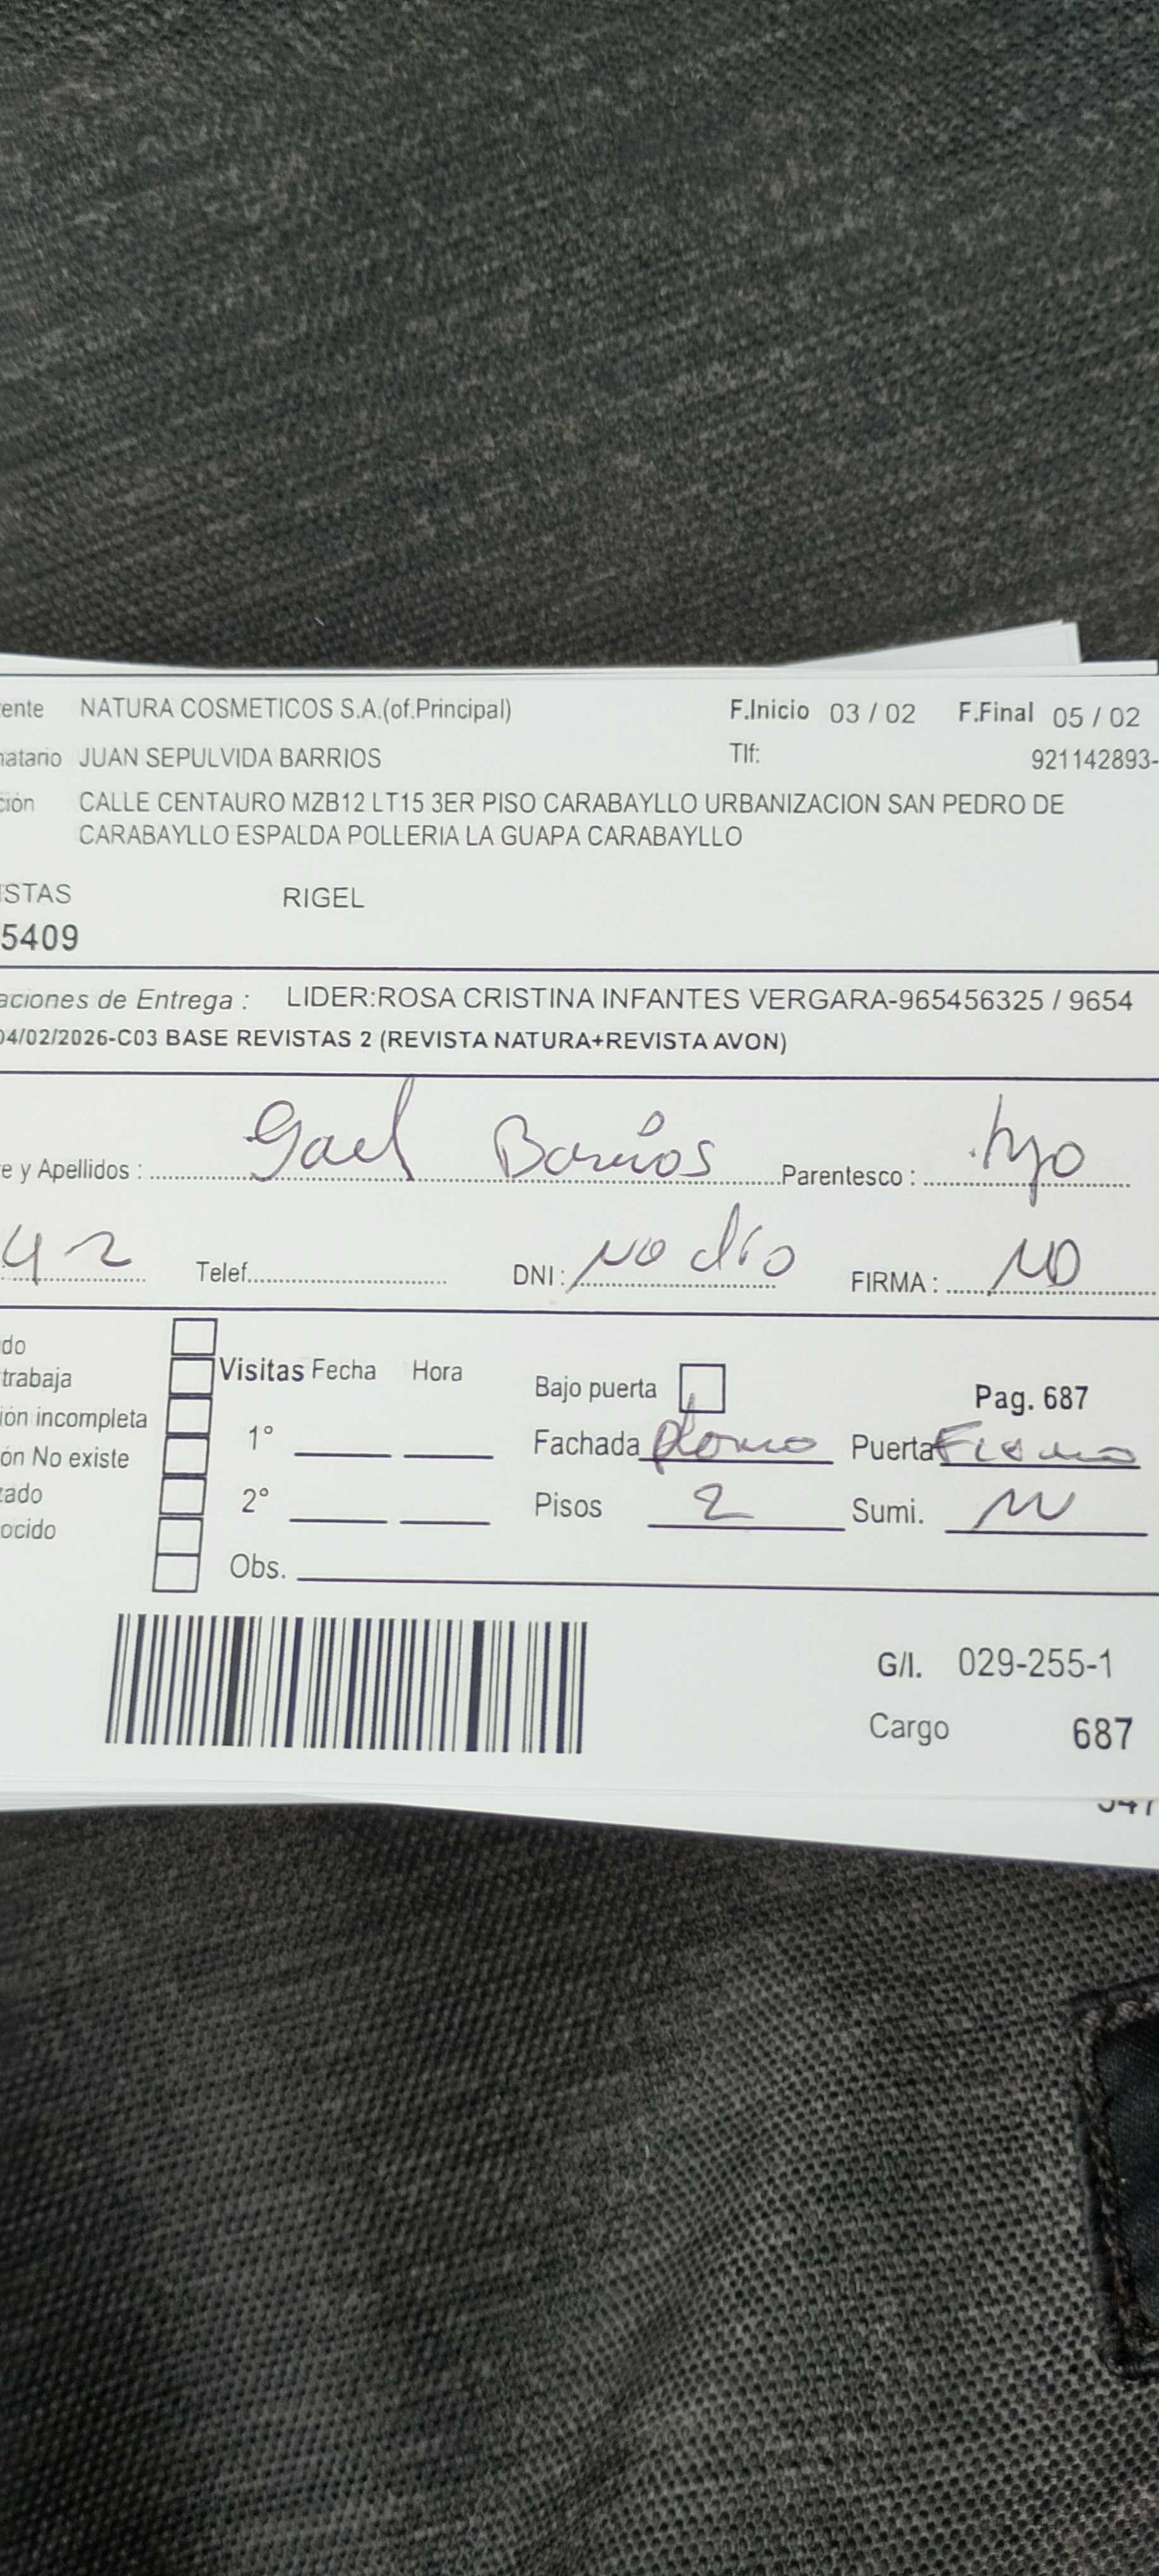 ente NATURA COSMETICOS S.A.(of.Principal) F.Inicio 03 / 02 F.Final 05 / 02
natario JUAN SEPULVIDA BARRIOS Tlf: 921142893-
ción CALLE CENTAURO MZB12 LT15 3ER PISO CARABAYLLO URBANIZACION SAN PEDRO DE
CARABAYLLO ESPALDA POLLERIA LA GUAPA CARABAYLLO
ISTAS RIGEL
5409
aciones de Entrega : LIDER:ROSA CRISTINA INFANTES VERGARA-965456325 / 9654
04/02/2026-C03 BASE REVISTAS 2 (REVISTA NATURA+REVISTA AVON)
e y Apellidos : Gael Barrios Parentesco : hijo
42 Telef. DNI : no dio FIRMA : NO
do
trabaja Visitas Fecha Hora Bajo puerta Pag. 687
ión incompleta 1° Fachada plomo Puerta
ón No existe
zado 2° Pisos 2 Sumi.
ocido
Obs.
G/I. 029-255-1
Cargo 687